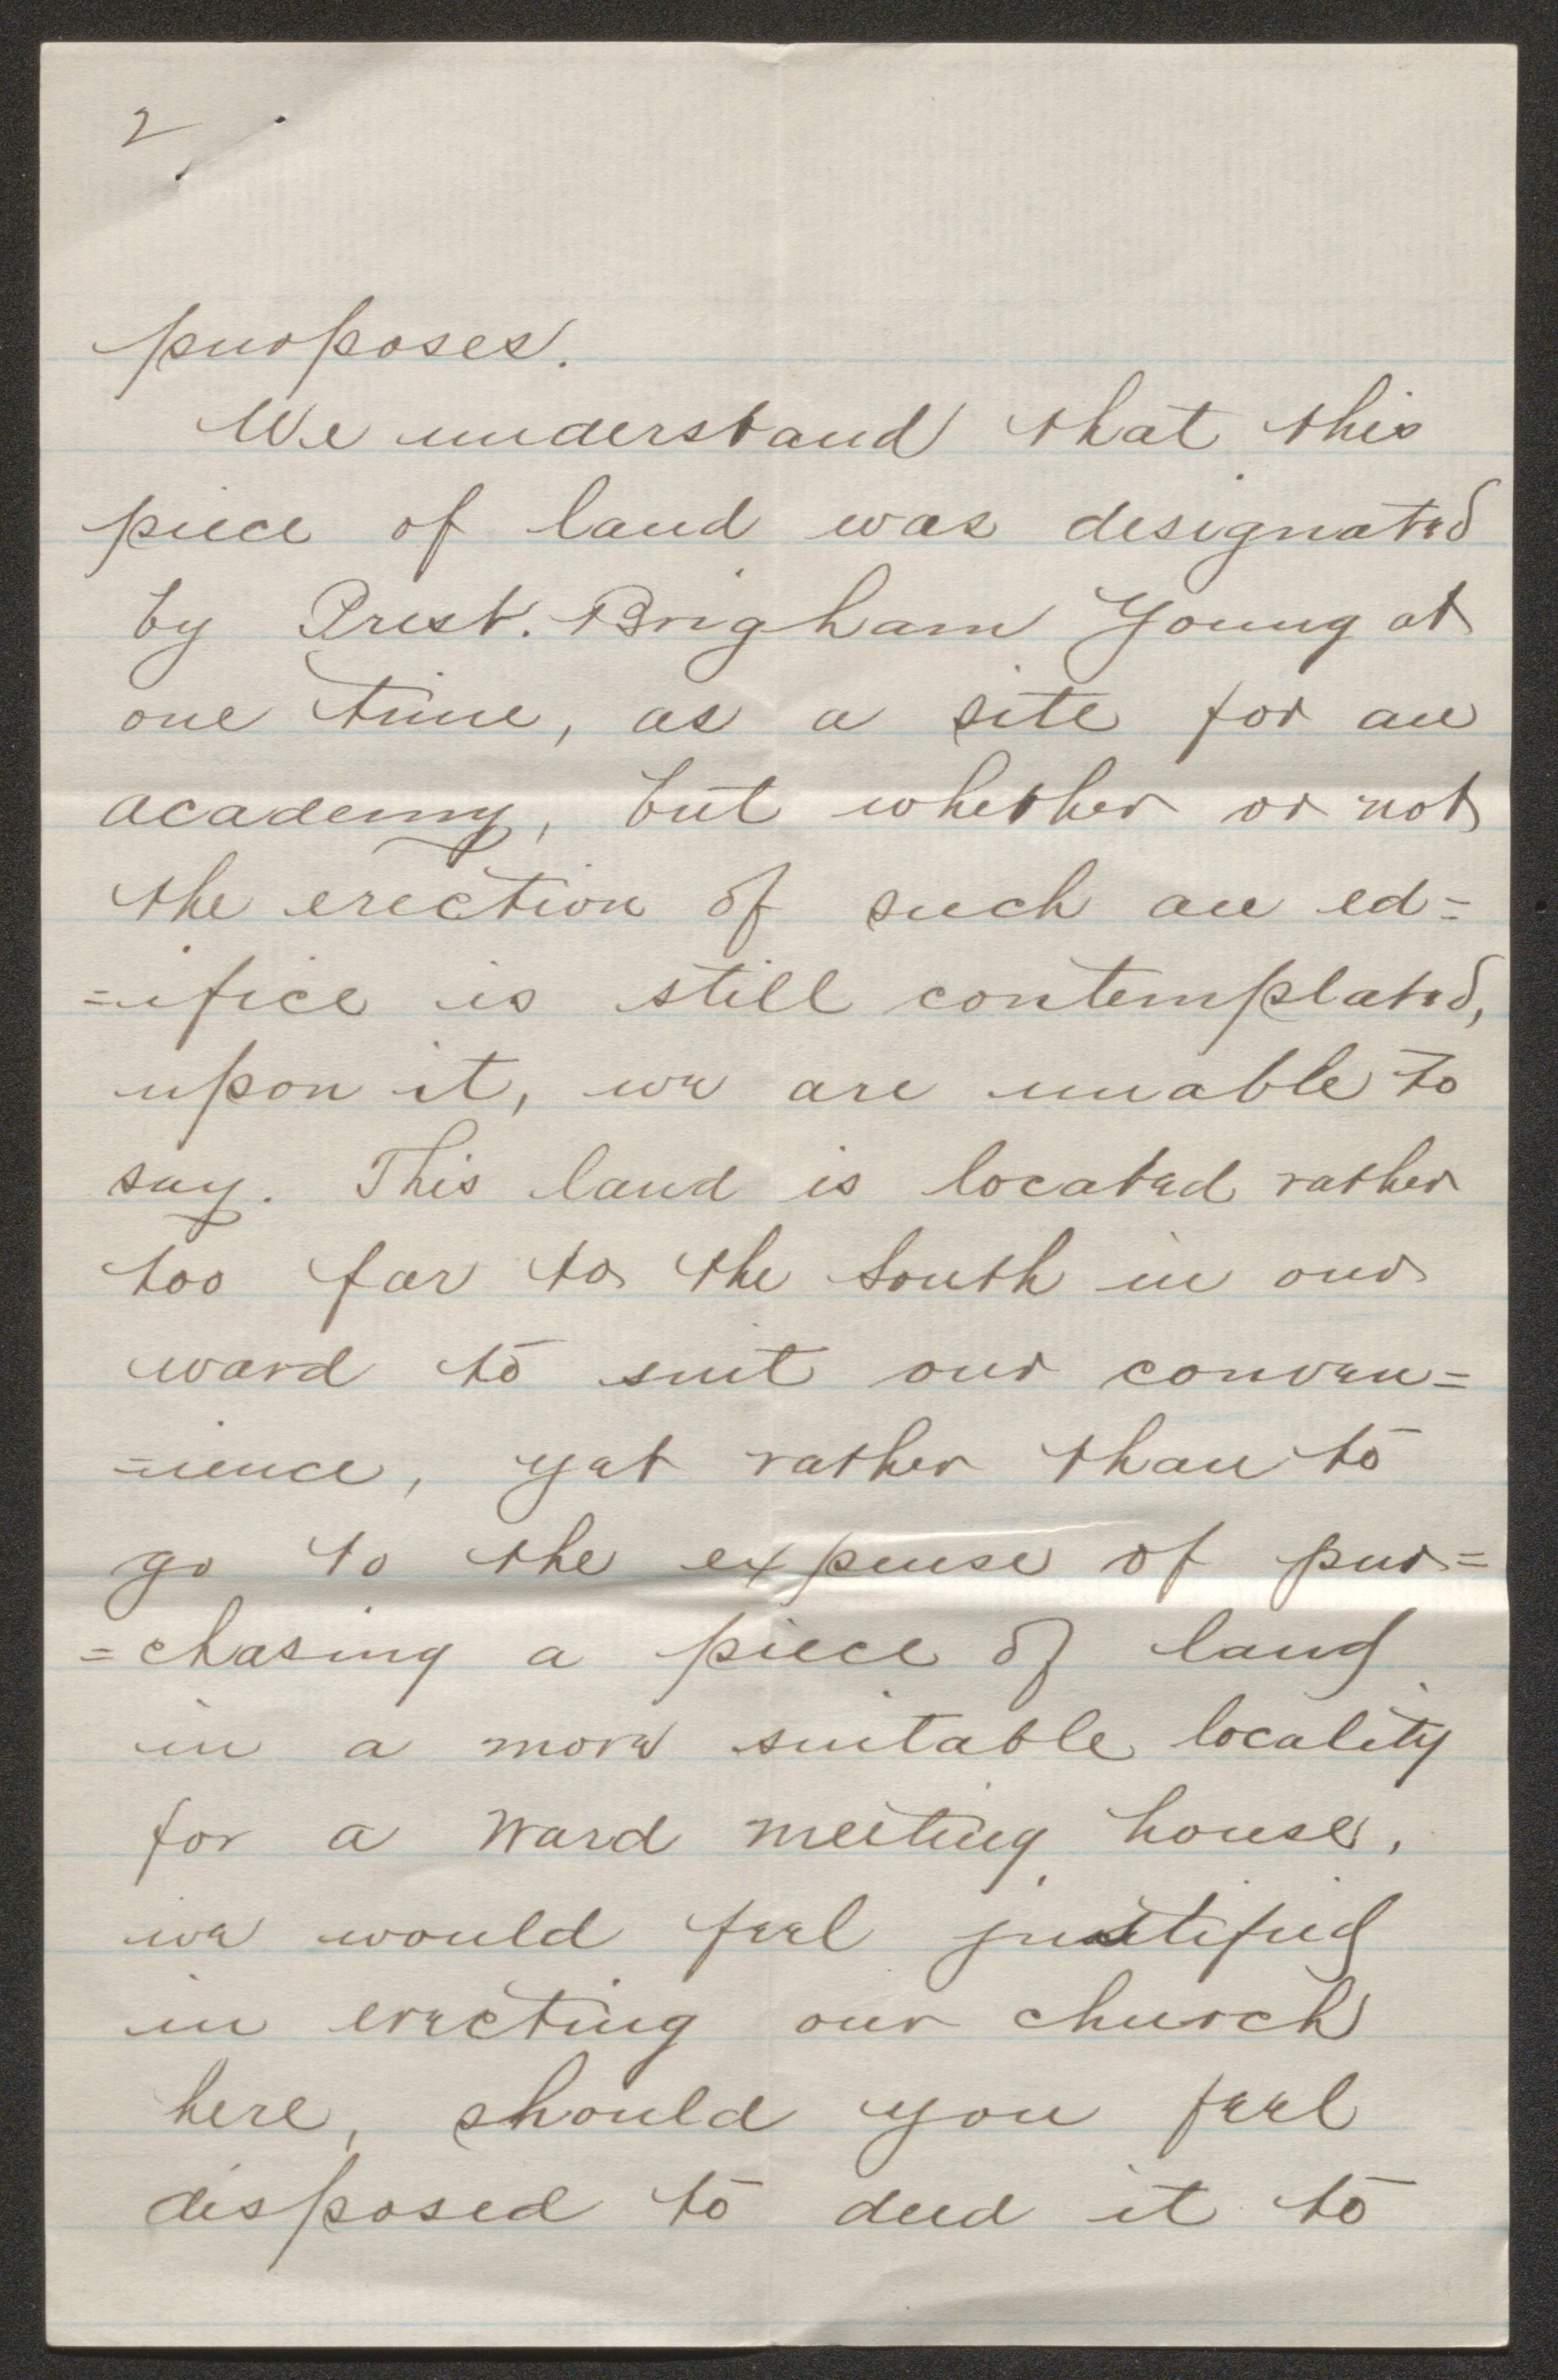 2
purposes.
We understand that this
piece of land was designated
by Prest. Brigham Young at
one time, as a site for an
academy, but whether or not
the erection of such an ed=
=ifice is still contemplated,
upon it, we are unable to
say. This land is located rather
too far to the South in our
ward to suit our conven=
=ience, yet rather than to
go to the expense of pur=
=chasing a piece of land
in a more suitable locality
for a Ward meeting house,
we would feel justified
in erecting our church
here, should you feel
disposed to deed it to